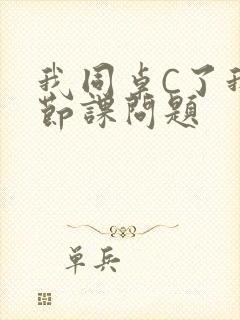 我同桌C了我
節課問題
单兵